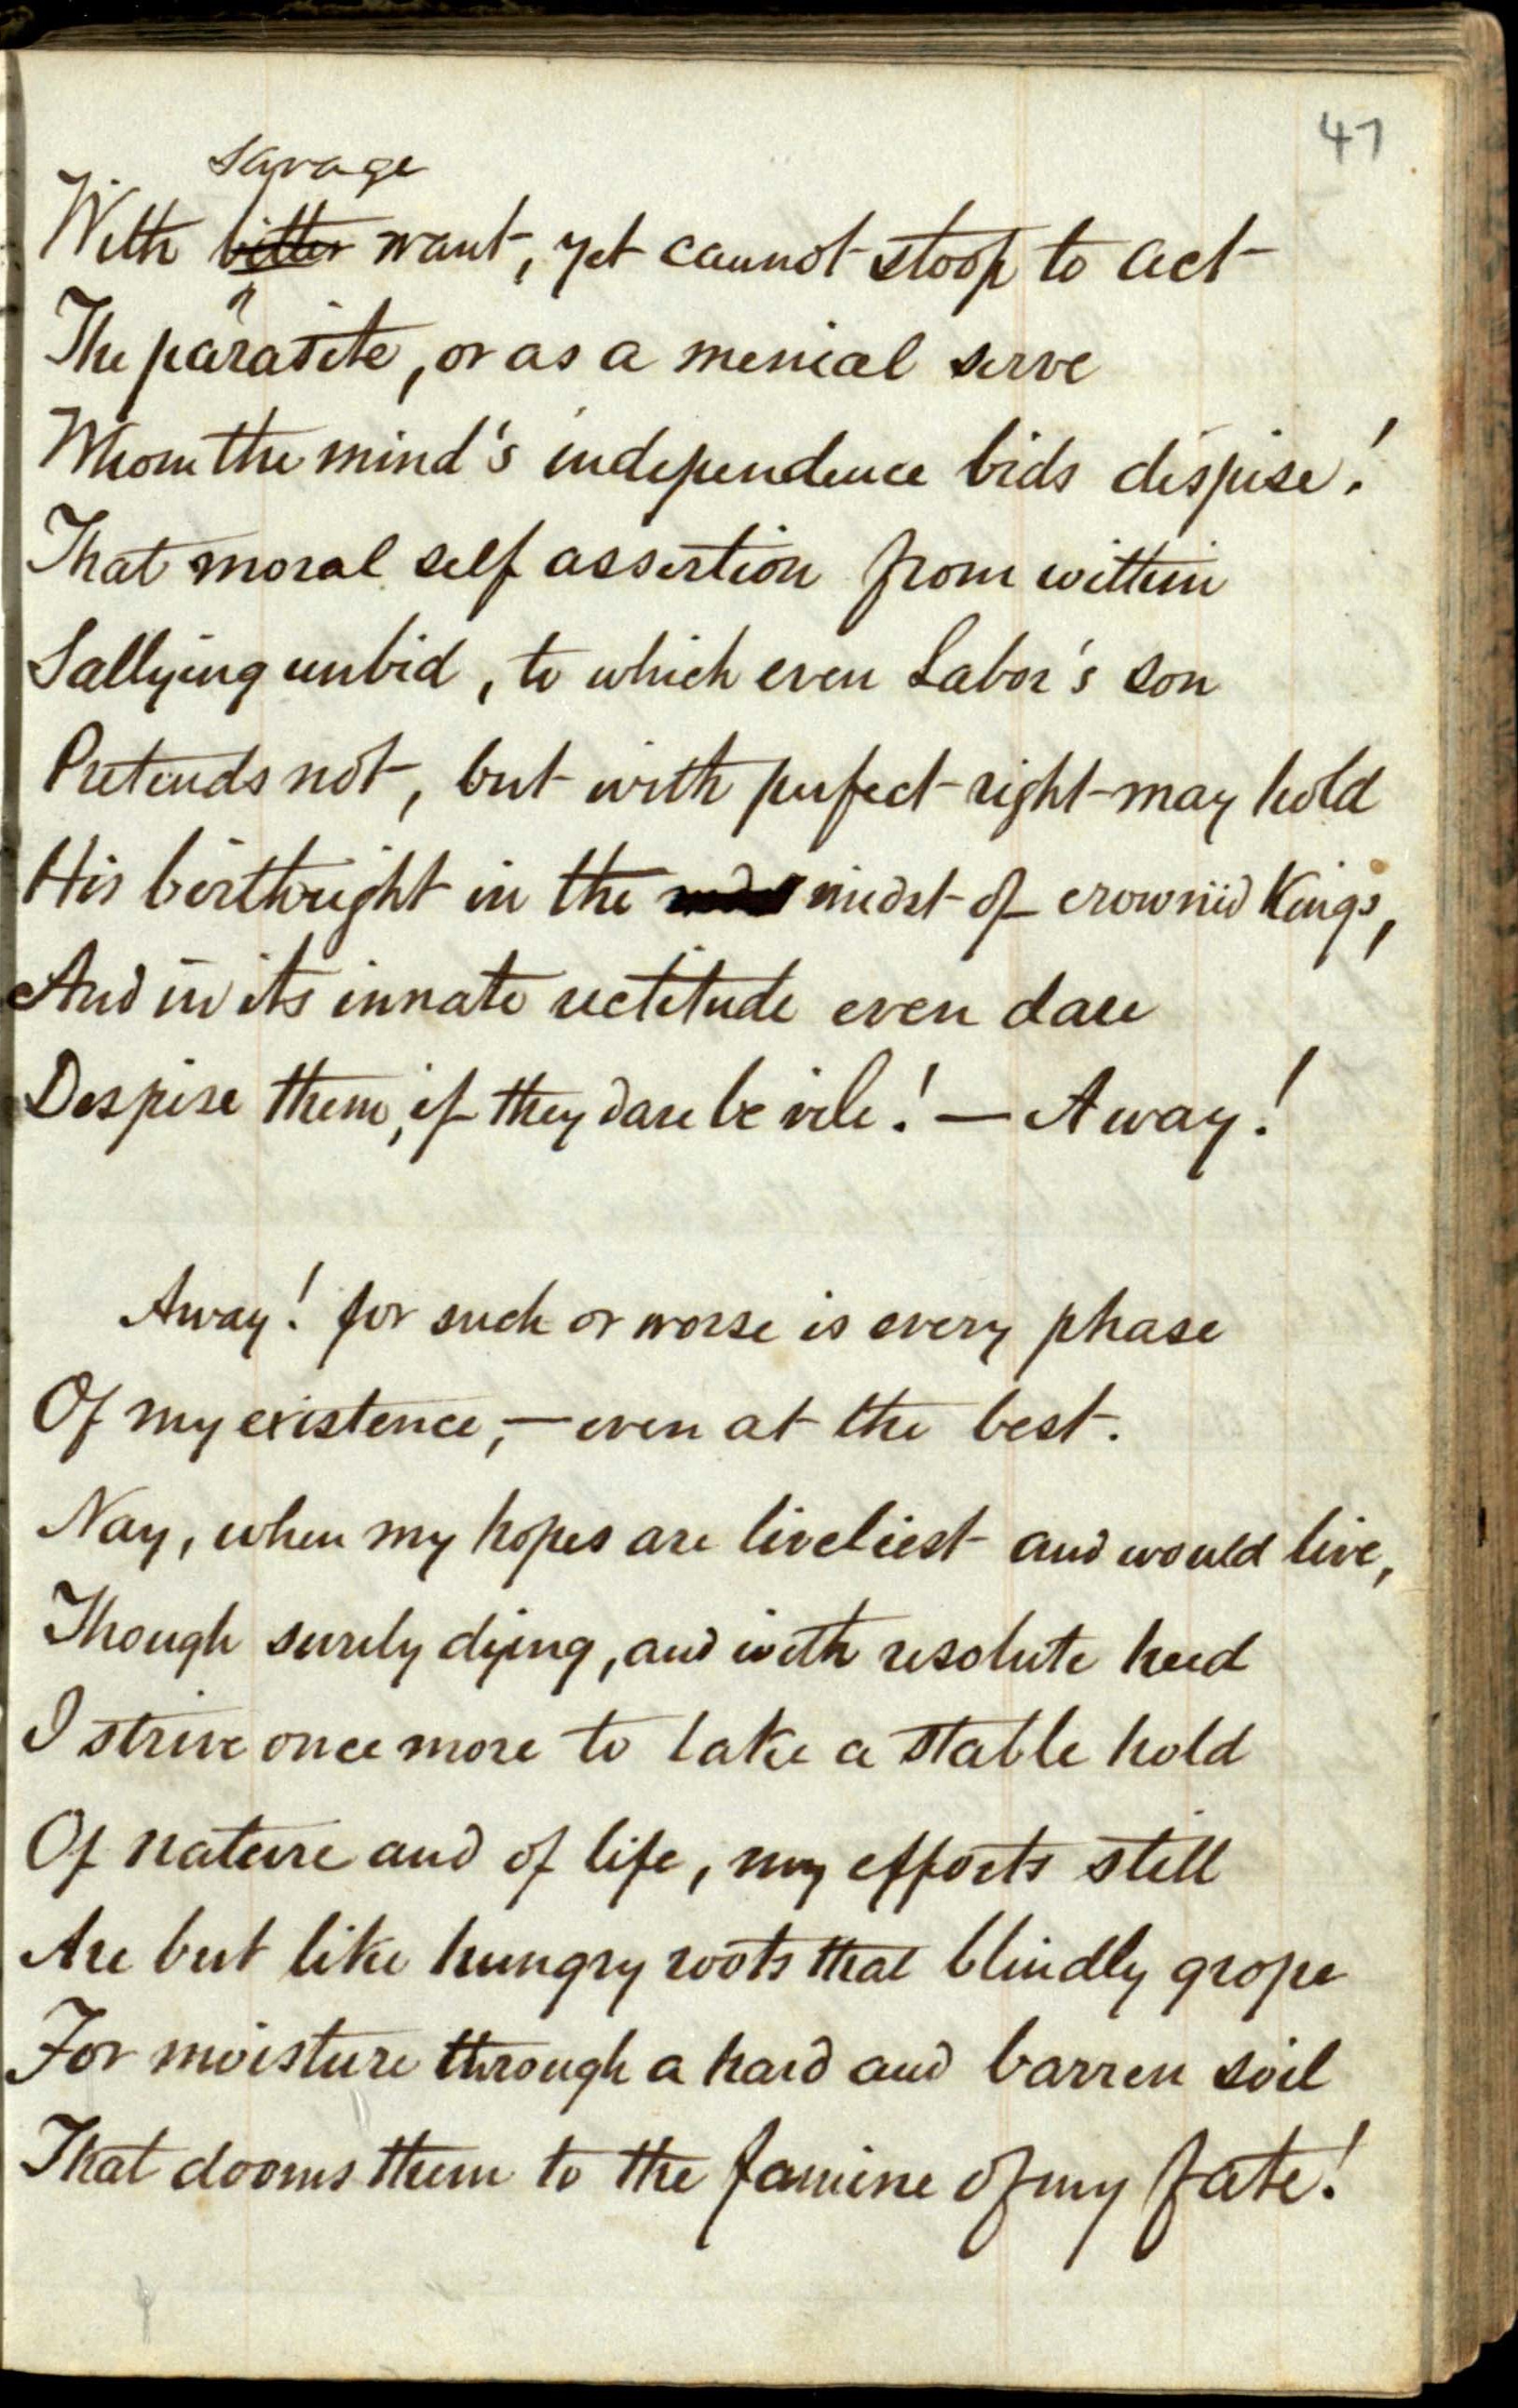 47
savage
With bitter want, yet cannot stoop to act
The parasite, or as a menial serve
Whom the mind's independence bids despise!
That moral self assertion from within
Sallying unbid, to which even Labor's son
Pretends not, but with perfect right may hold
His birthright in the midst of crownìd Kings,
And in its innate rectitude even dare
Despise them, if they dare be vile! — Away!
Away! for such or worse is every phase
Of my existence, — even at the best.
Nay, when my hopes are liveliest and would live,
Though surely dying, and with resolute heed
I strive once more to take a stable hold
Of nature and of life, my efforts still
Are but like hungry roots that blindly grope
For moisture through a hard and barren soil
That dooms them to the famine of my fate!